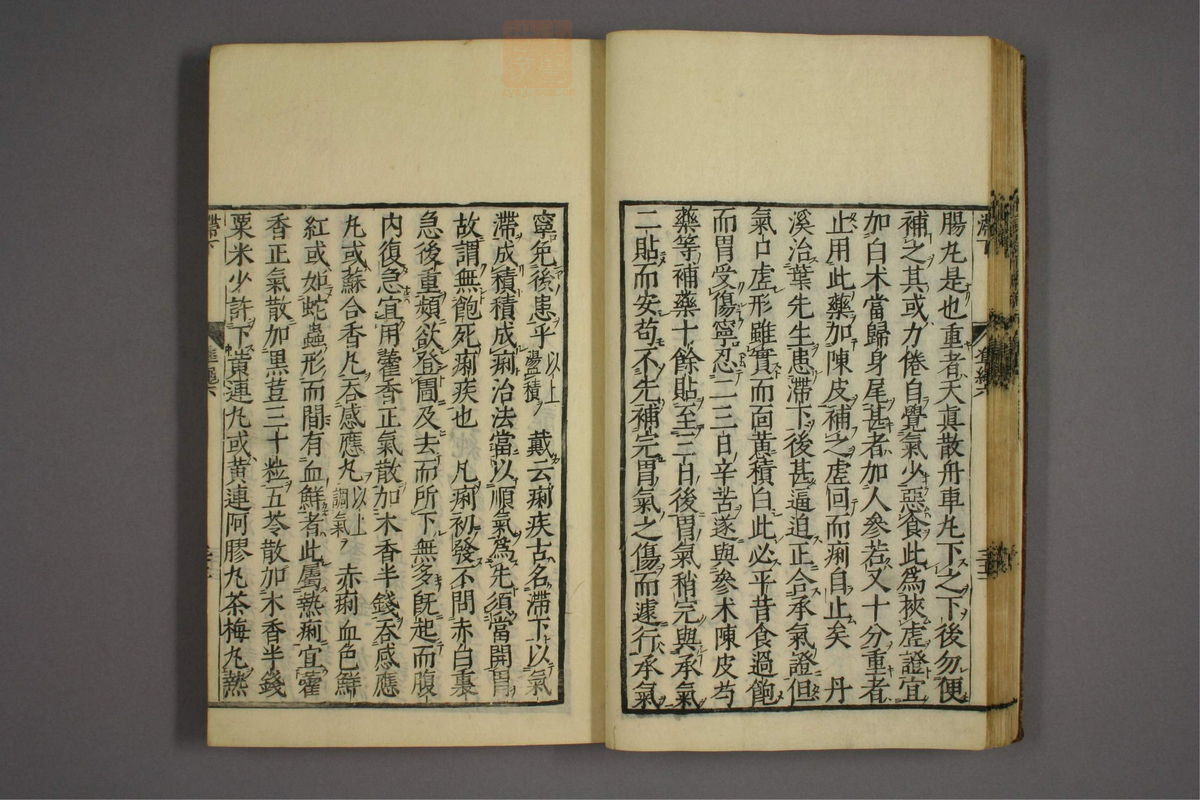 腸丸是也重者天真散舟車丸下之下後勿便
補之其或力倦自覺氣少惡食此為挾虛證宜
加白术當歸身尾甚者加人參若又十分重者
止用此藥加陳皮補之虛回而痢自止矣　丹
溪治葉先生患滯下後甚逼迫正合承氣證但
氣口虛形雖實而面黃積白此必平昔食過飽
而胃受傷寧忍二三日辛苦遂與參术陳皮芍
藥等補藥十餘貼至三日後胃氣稍完與承氣
二貼而安苟不先補完胃氣之傷而遽行承氣
寧免後患乎以上盪積　戴云痢疾古名滯下以氣
滯成積積成痢治法當以順氣爲先須當開胃
故謂無飽死痢疾也　凡痢初發不問赤白裏
急後重頻欲登圊及去而所下無多既起而腹
内復急宜用藿香正氣散加木香半錢吞感應
丸或蘇合香丸吞感應丸以上調氣　赤痢血色鮮
紅或如蛇蟲形而間有血鮮者此屬熱痢宜藿
香正氣散加黑荳三十粒五苓散加木香半錢
粟米少許下黄連丸或黄連阿膠丸茶梅丸熱
滯下